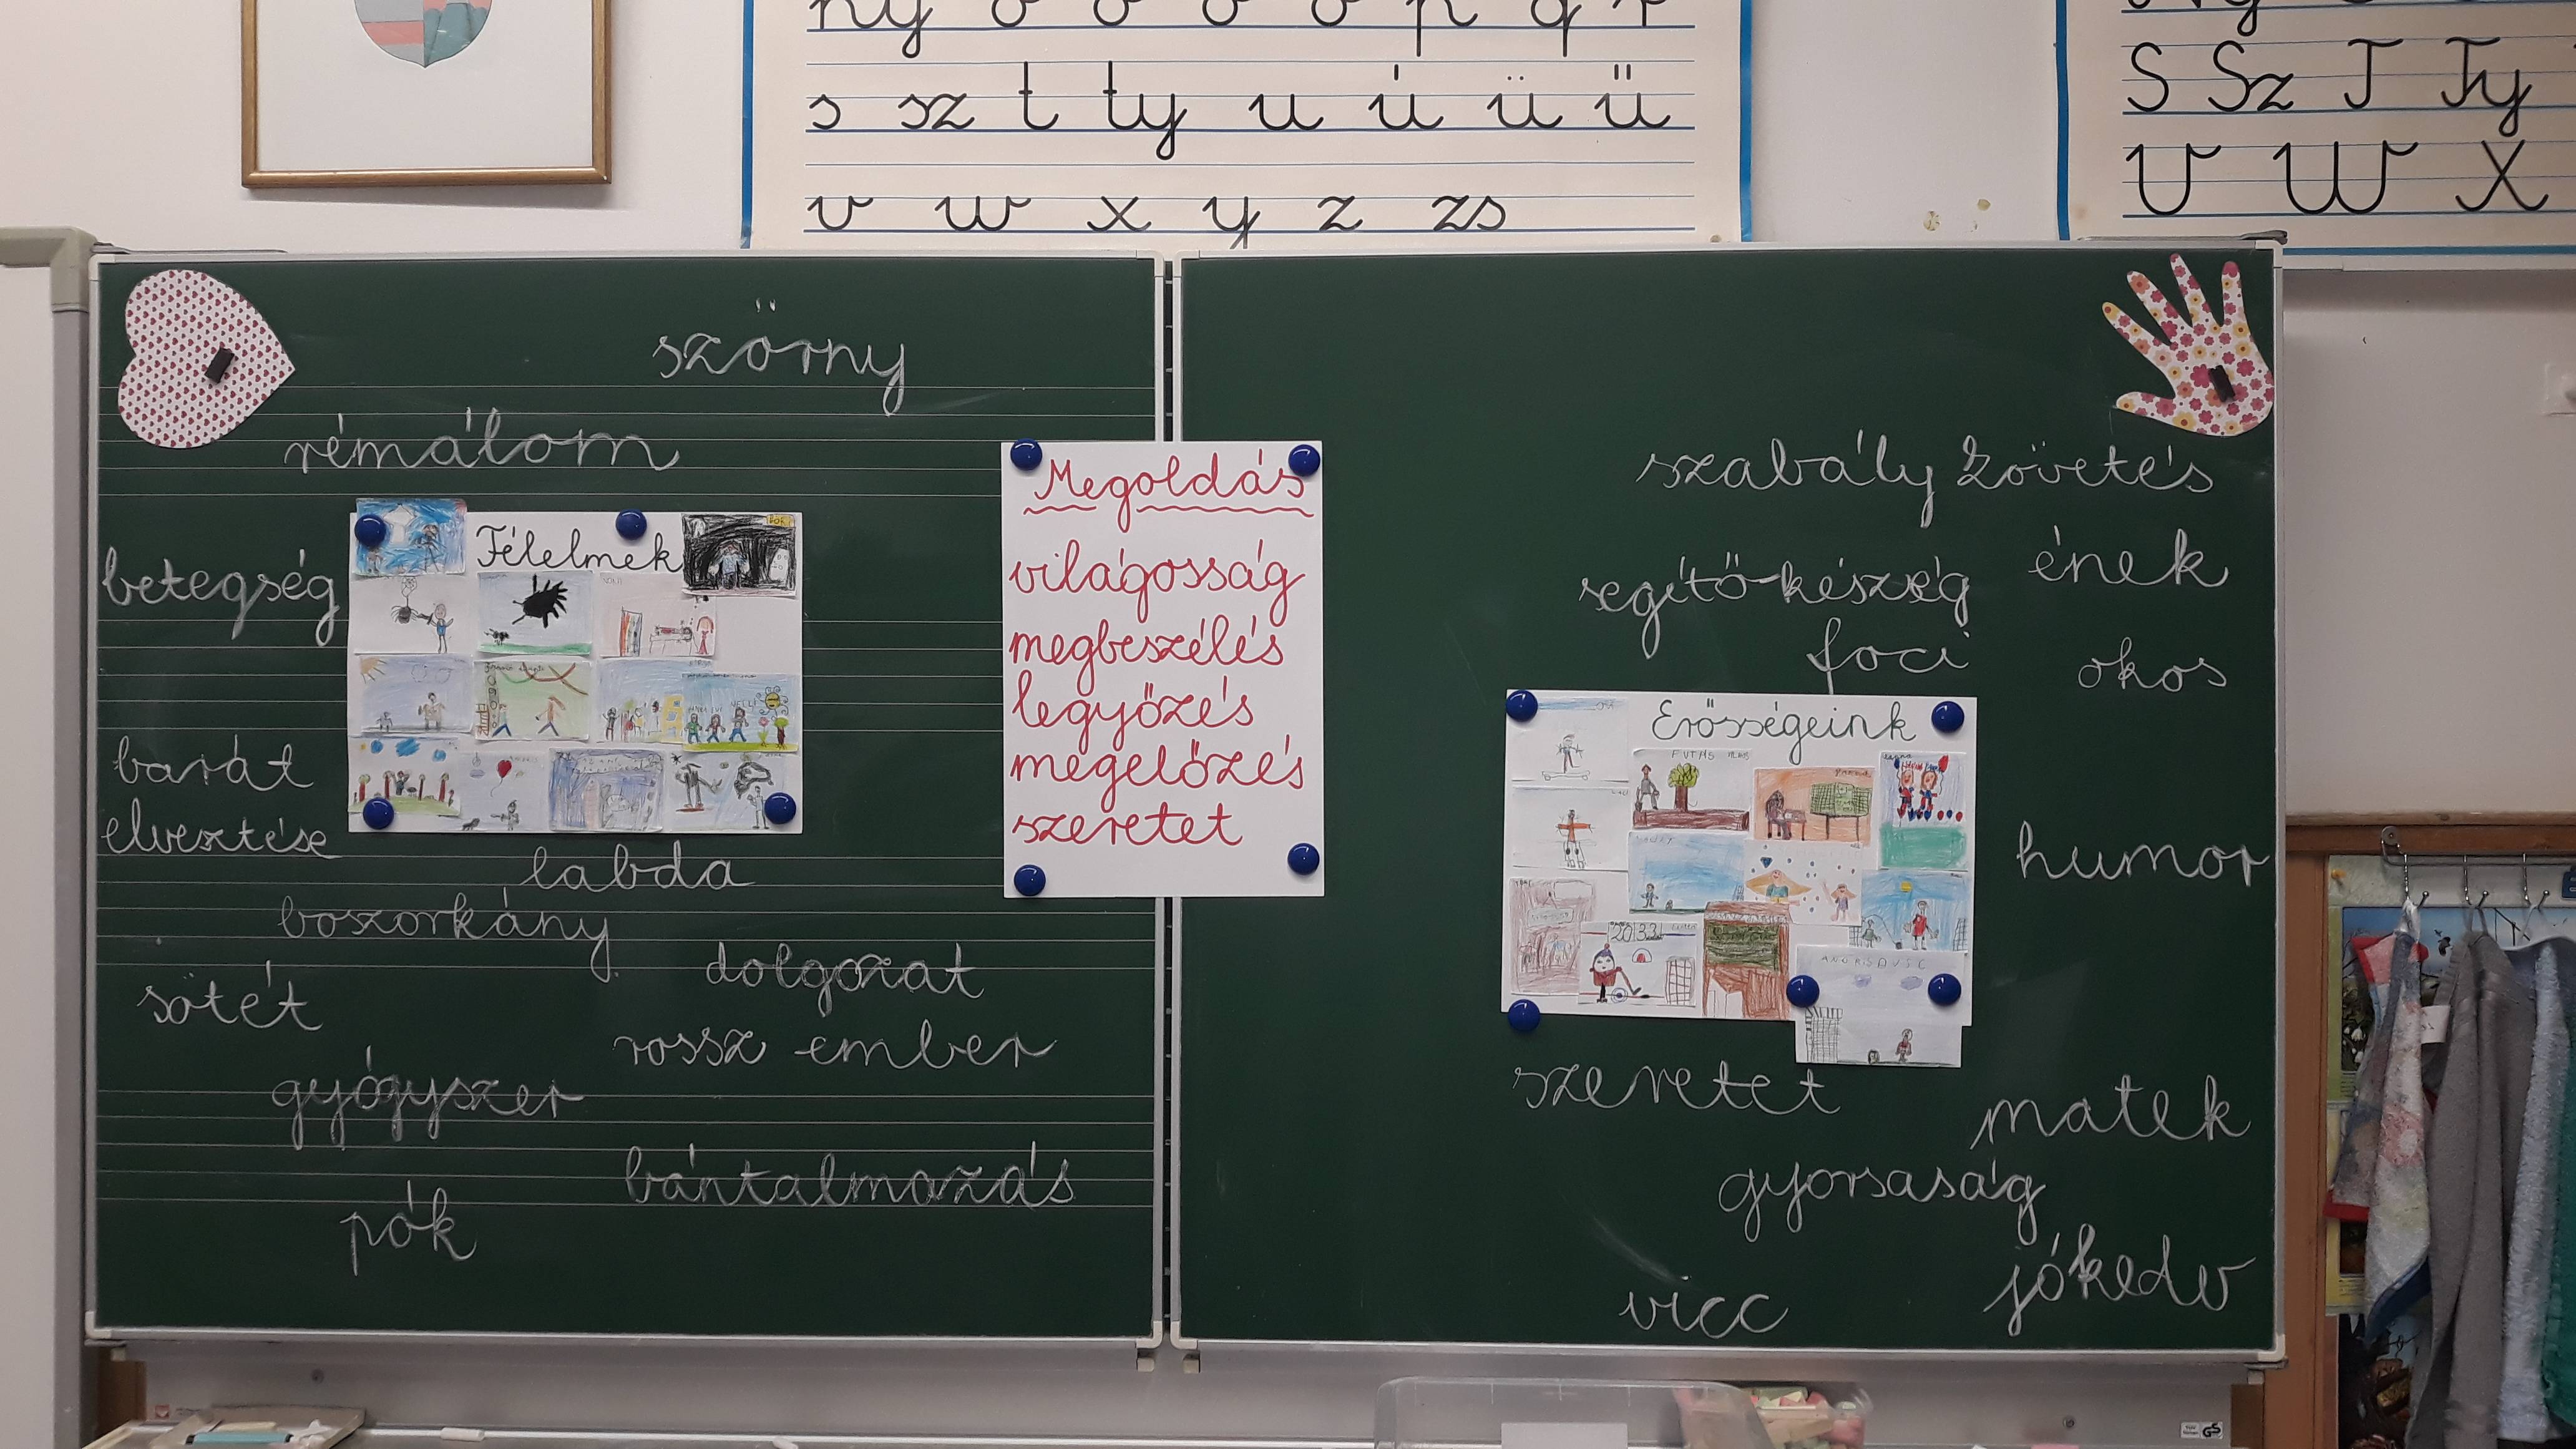 s sz t ty u ú ü ű
v w x y z zs
S Sz T Ty
V W X
szörny
rémálom
Félelmek
betegség
barát
elvesztése
labda
boszorkány
dolgozat
sötét
rossz ember
gyógyszer
bántalmazás
pók
Megoldás
világosság
megbeszélés
legyőzés
megelőzés
szeretet
szabály követés
ének
segítő-készség
foci
okos
Erősségeink
humor
szeretet
matek
gyorsaság
jókedv
vicc